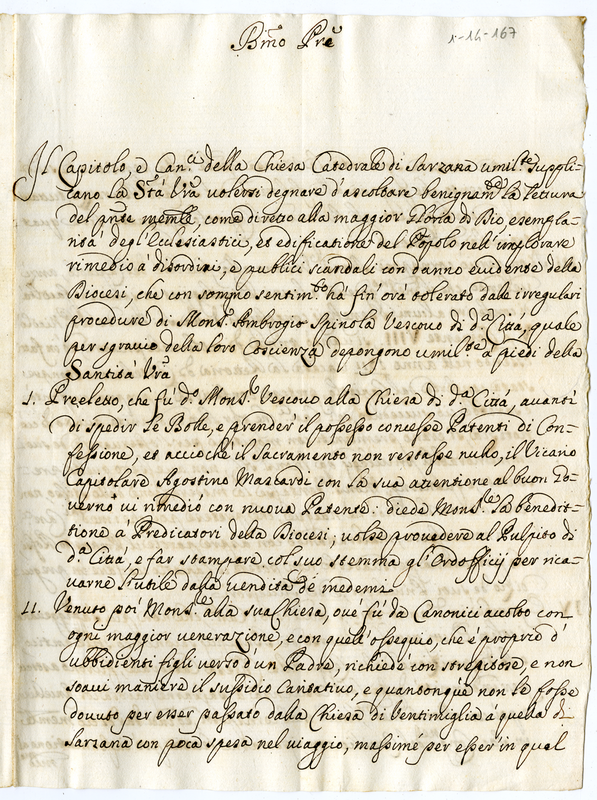 Bmo Pre
1-14-167
Il Capitolo, e Can.ci della Chiesa Catedrale di Sarzana umil.te suppli=
cano La Stà Vrã volersi degnare d'ascoltare benignam.te la lettura
del pnte meml̃e, come diretto alla maggior Gloria di Dio, esempla=
rità degl'Eclesiastici, et edificatione del Popolo nell'implorare
rimedio à disordini, e publici scandali con danno evidente della
Diocesi, che con sommo sentim.to hà fin'orà tolerato dalle irregulari
procedure di Mons.r Ambrogio Spinola Vescovo di d.a Città, quale
per sgravio della loro Coscienza depongono umil.te a' piedi della
Santità Vrã
I. Preeletto, che fù d.o Mons.re Vescovo alla Chiesa di d.a Città, avanti
di spedir le Bolle, e prender il possesso concesse Patenti di Con=
fessione, et acciochè il Sacramento non restasse nullo, il Vicario
Capitolare Agostino Mascardi con la sua attentione al buon Go=
verno vi rimediò con nuova Patente: diede Mons.re la benedit=
tione à Predicatori della Diocesi; volse provedere al Pulpito di
d.a Città, e far stampare col suo stemma gl'Ordofficij per rica=
varne l'utile dalla vendita de' medemi.
II. Venuto poi Mons.re alla sua Chiesa, ove fù da Canonici accolto con
ogni maggior venerazione, e con quell'ossequio, che è proprio d'
ubbidienti figli verso d'un Padre, richiede con strepitose, e non
soavi maniere il sussidio Caritativo, e quantonque non le fosse
dovuto per esser passato dalla Chiesa di Ventimiglia à quella di
Sarzana con poca spesa nel viaggio, massime per esser in qual